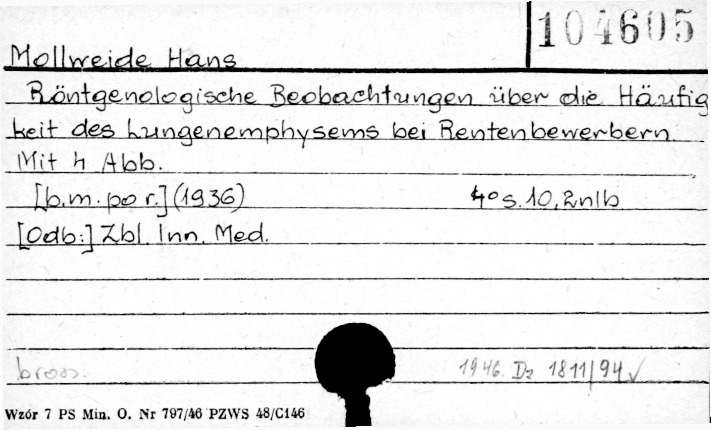 104605
Mollweide Hans
Röntgenologische Beobachtungen über die Häufig
keit des Lungenemphysems bei Rentenbewerbern
Mit 4 Abb.
[b.m. po r.] (1936) 4° s. 10, 2nlb
[Odb:] Zbl. Inn. Med.
brosz. 1946. Dz 1811/94 √
Wzór 7 PS Min. O. Nr 797/46 PZWS 48/C146